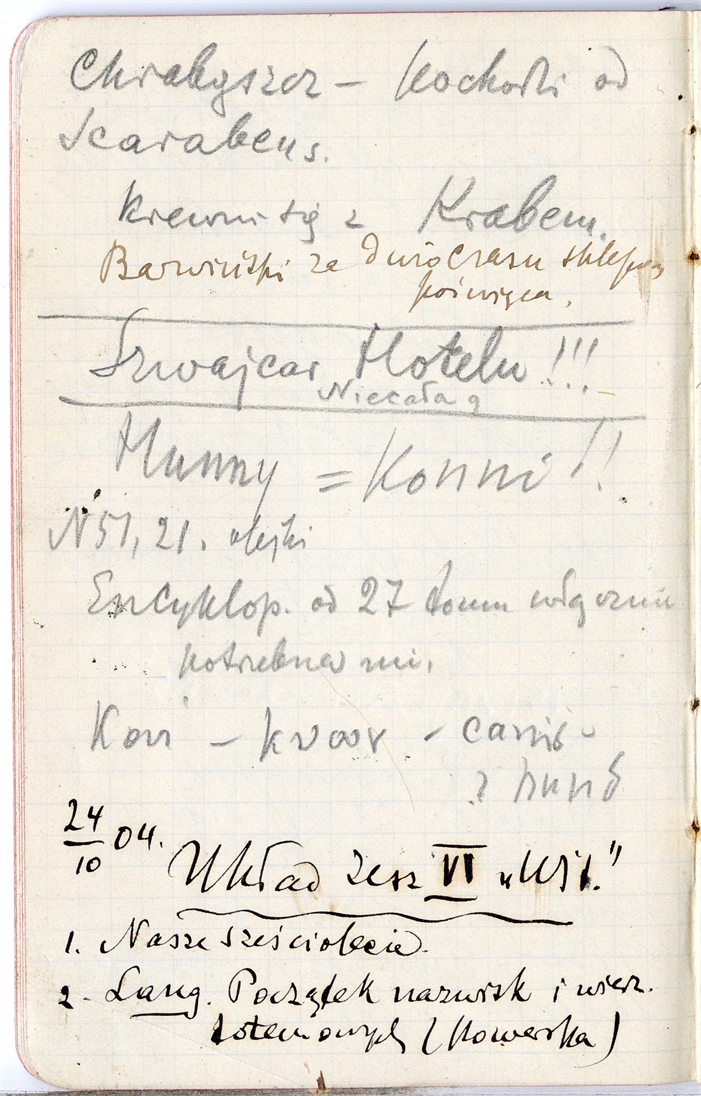 Chrabąszcz – pochodzi od
Scarabeus.
krewni się z Krabem.
Barwiński za
poświęca.
Szwajcar Hotelu!!!
Niecała 9
Hunny = Konni!!
N 51, 21.
Encyklop. od 27 tomu włącznie
potrzebna mi.
Koń – κυων – canis –
? hund
24/10 04.
Układ zesz VI „Wisł."
1. Nasze sześciolecie.
2. Lang. Początek nazwisk i wierz.
totemowych (Kowerska)